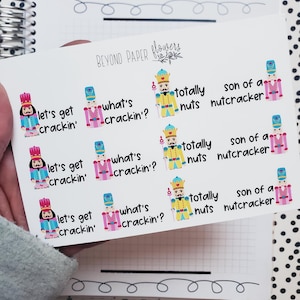 BEYOND PAPER flowers
let's get crackin'
what's crackin'?
totally nuts
son of a nutcracker
let's get crackin'
what's crackin'?
totally nuts
son of a nutcracker
let's get crackin'
what's crackin'?
totally nuts
son of a nutcracker